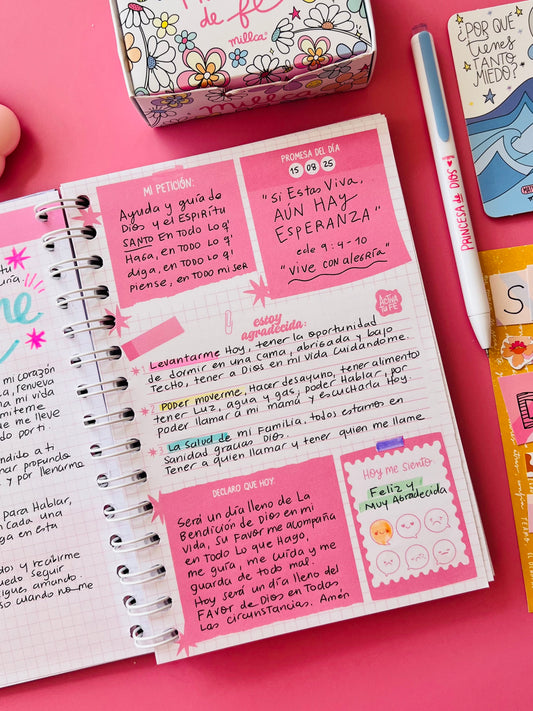 de fe
millca
¿POR QUÉ
tienes
TANTO
MIEDO?
PRINCESA de DIOS
MI PETICIÓN:
Ayuda y guía de
Dios y el Espíritu
SANTO EN TODO LO Q'
Haga, en TODO LO Q'
diga, en TODO LO Q'
Piense, en TODO mi SER
PROMESA DEL DÍA
15 08 25
"Si Estas Viva,
AÚN HAY
ESPERANZA"
ecle 9:4-10
"Vive con alegría"
estoy
agradecida:
Activa
Tu Fe
Levantarme Hoy, tener la oportunidad
de dormir en una cama, abrigada y bajo
Techo, tener a Dios en mi vida cuidandome.
Poder moverme, Hacer desayuno, tener alimento
tener Luz, agua y gas, poder Hablar, por
poder llamar a mi mamá y escucharla Hoy.
La salud de mi Familia, todos estamos en
Sanidad gracias Dios.
Tener a quien llamar y tener quien me llame
DECLARO QUE HOY:
Será un día lleno de La
Bendición de Dios en mi
vida, su Favor me acompaña
en Todo Lo que Hago,
me guía, me cuida y me
guarda de todo mal.
Hoy será un día lleno del
FAVOR de Dios en Todas
Las circunstancias. Amén
Hoy me siento
Feliz y
Muy Agradecida
mi corazón
renueva
mi vida
me lleve
por ti.
a ti
profundo
y por llenarme
para Hablar,
cada una
en esta
y recibirme
seguir
amando.
cuando no me
S